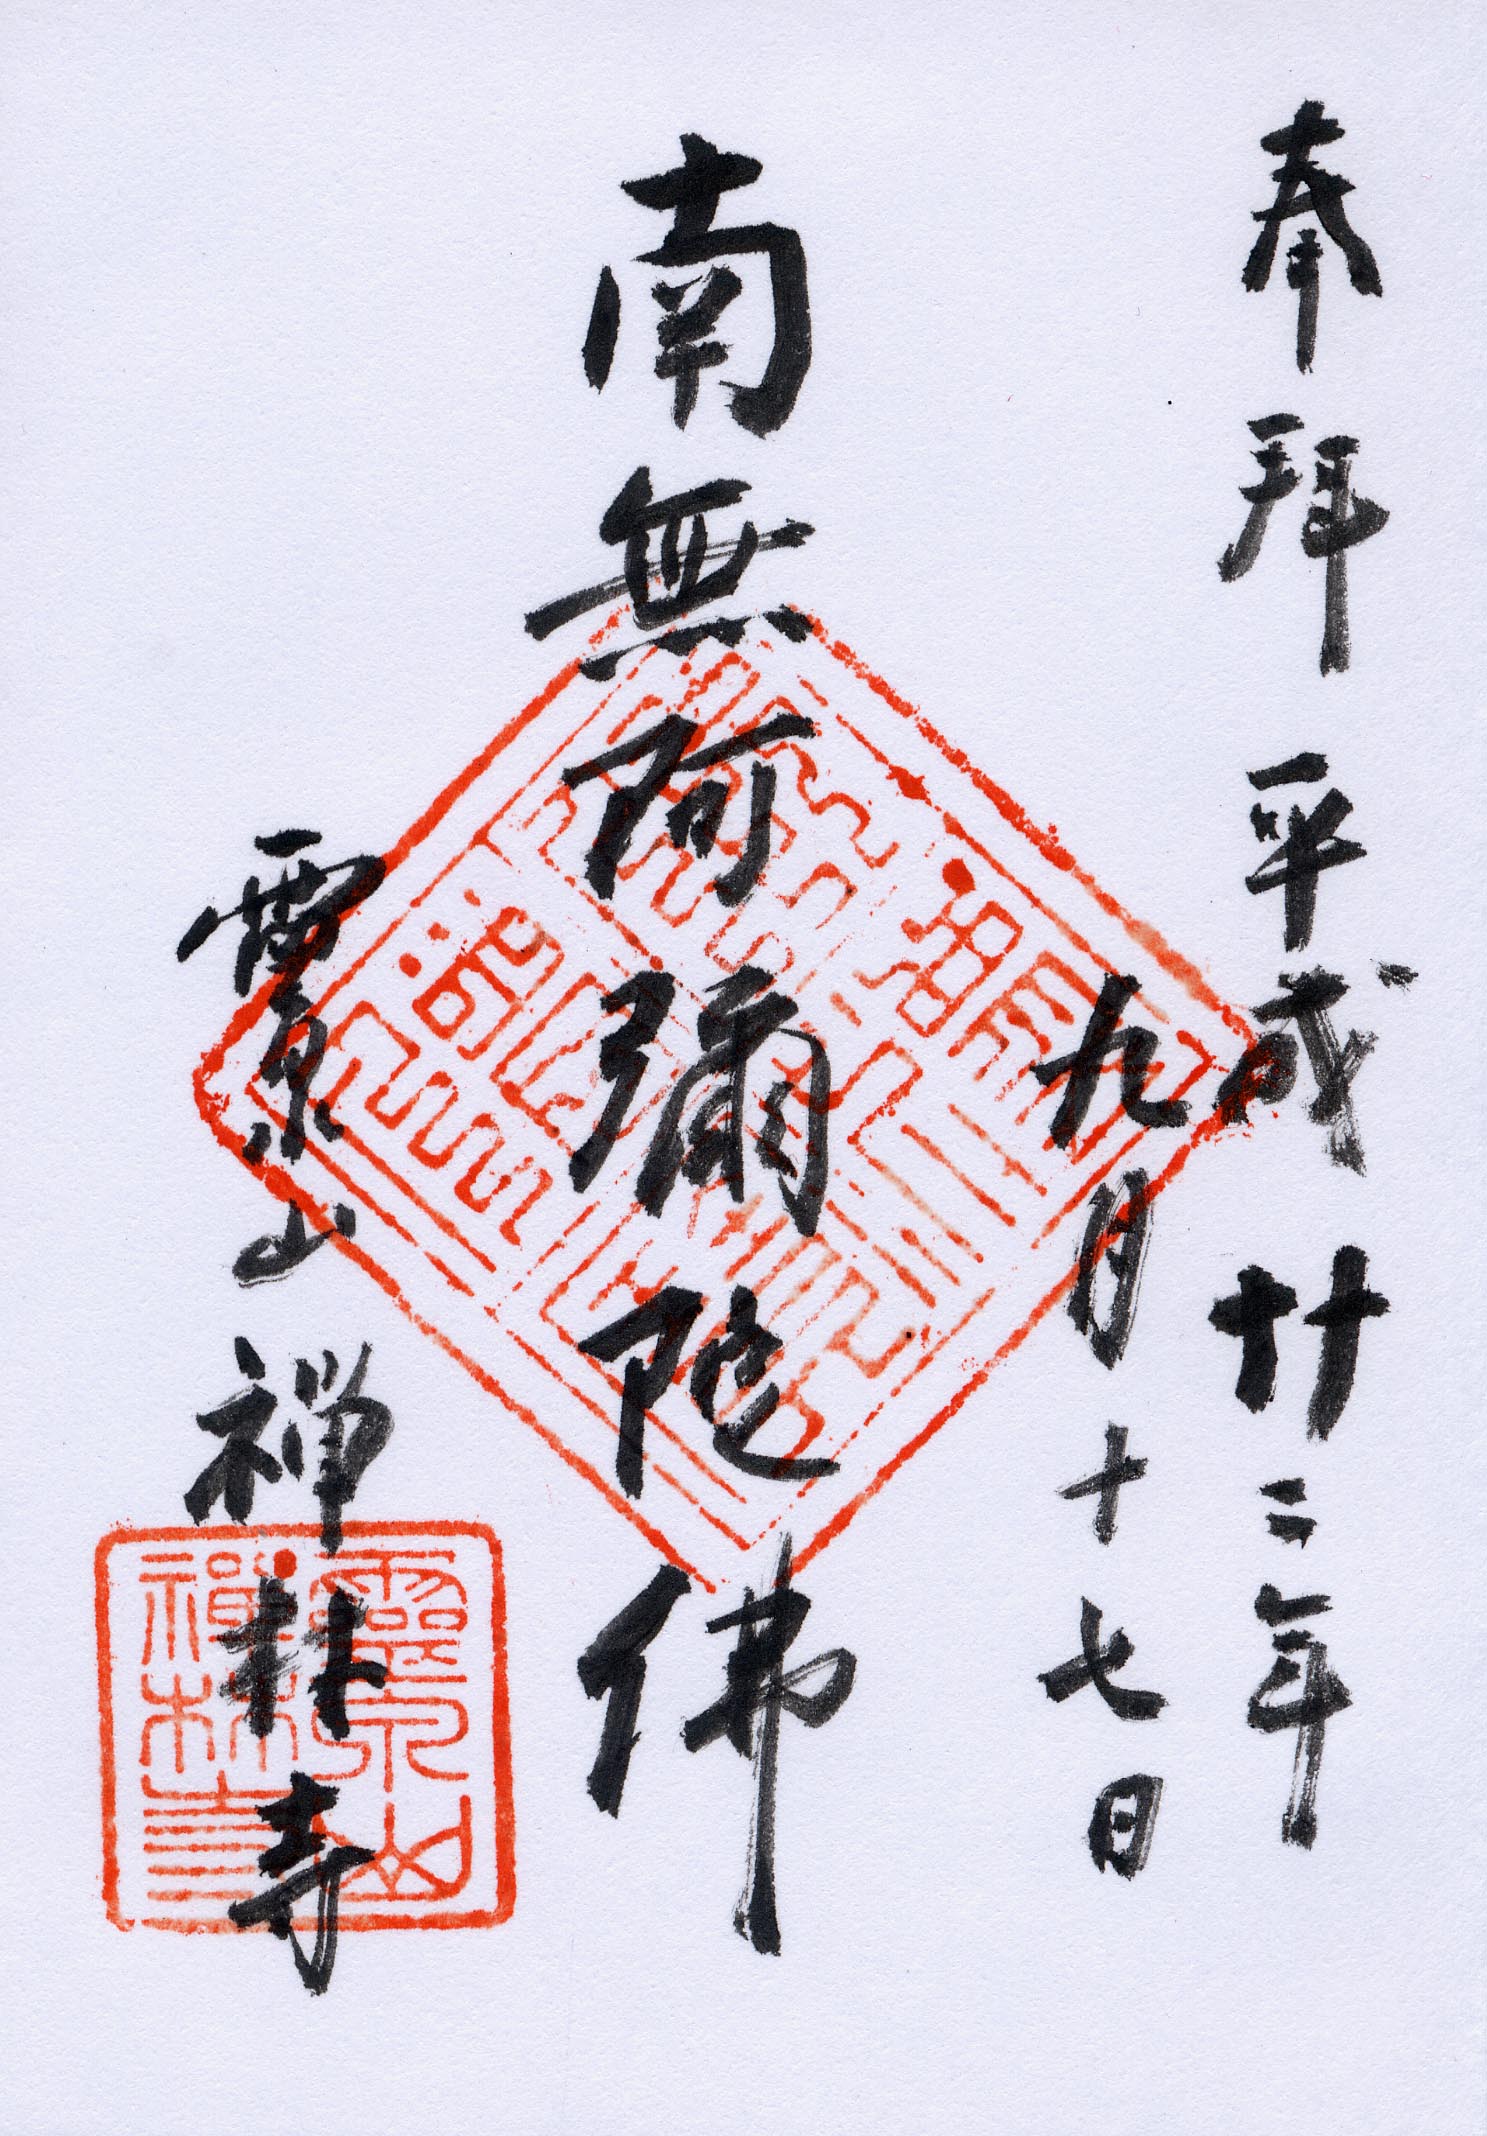 奉拝 平成廿二年
九月十七日
南無阿彌陀佛
霊泉山 禅林寺
靈泉山
禪林寺